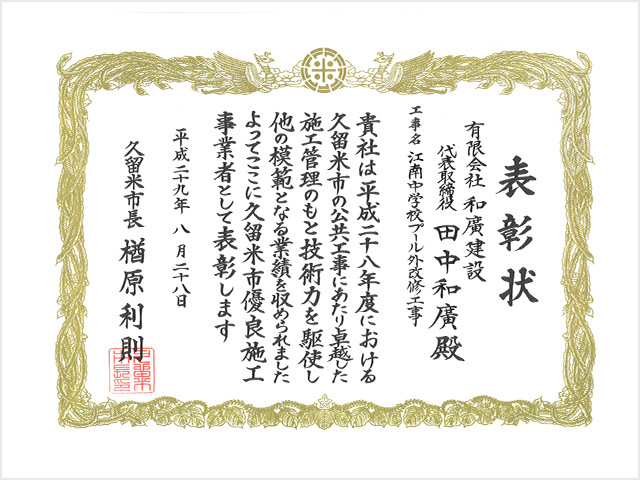 表彰状
有限会社 和廣建設
代表取締役 田中和廣 殿
工事名 江南中学校プール外改修工事
貴社は平成二十八年度における
久留米市の公共工事にあたり卓越した
施工管理のもと技術力を駆使し
他の模範となる業績を収められました
よってここに久留米市優良施工
事業者として表彰します
平成二十九年 八月二十八日
久留米市長 楢原利則